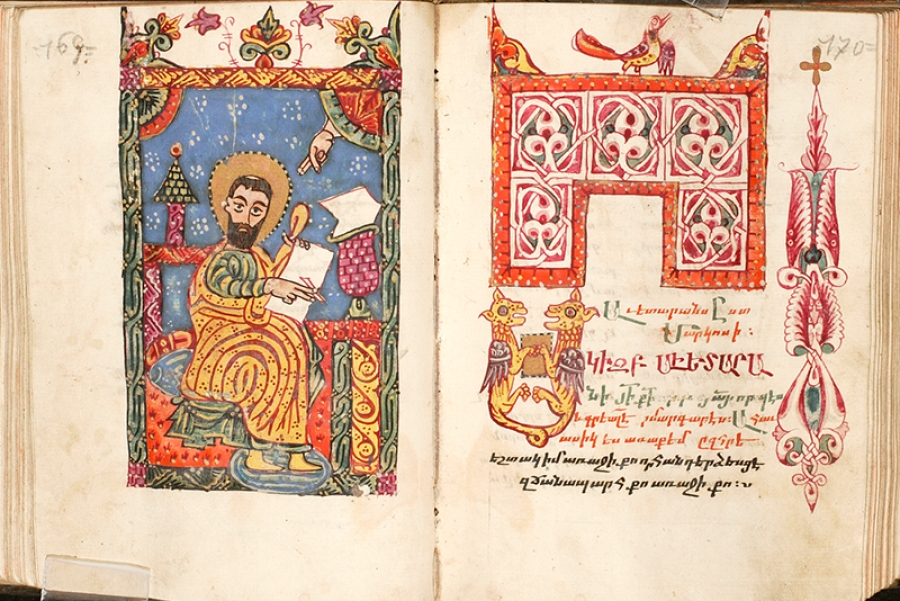 -169=
-170=
Աւետարանս Ըստ
Մարկոսի :
ԿԻԶԲ ԱՒԵՏԱՐԱ
նի Յի Քի այ որպէս
գրեալ է մարգարէս : Ահա
ւասիկ ես առաքեմ զհրե
եշտակ իմ առաջի քո որ հանդերձեսցէ
զճանապարհ քո առաջի քո :